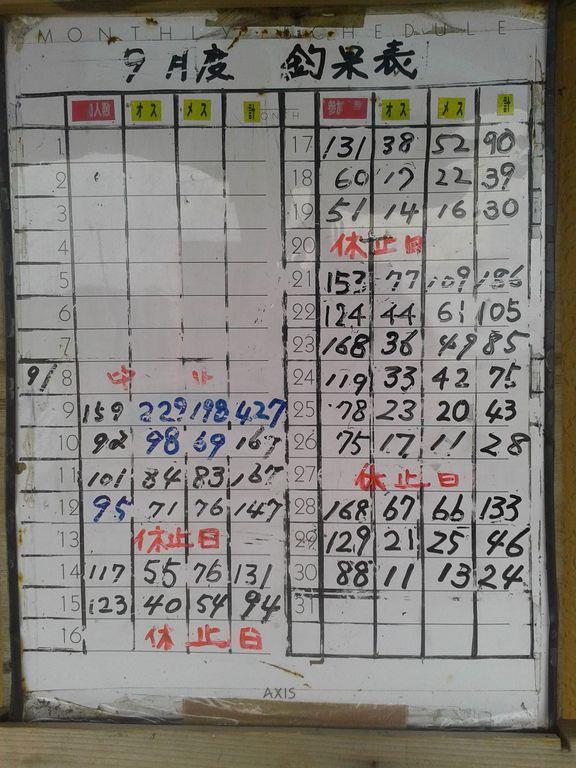 MONTHLY SCHEDULE
9月度 釣果表
人数 オス メス 計
1
2
3
4
5
6
7
9/8 中止
9 159 229 198 427
10 92 98 69 167
11 101 84 83 167
12 95 71 76 147
13 休止日
14 117 55 76 131
15 123 40 54 94
16 休止日
MONTH
参加 数 オス メス 計
17 131 38 52 90
18 60 17 22 39
19 51 14 16 30
20 休止日
21 153 77 109 186
22 124 44 61 105
23 168 36 49 85
24 119 33 42 75
25 78 23 20 43
26 75 17 11 28
27 休止日
28 168 67 66 133
29 129 21 25 46
30 88 11 13 24
31
AXIS